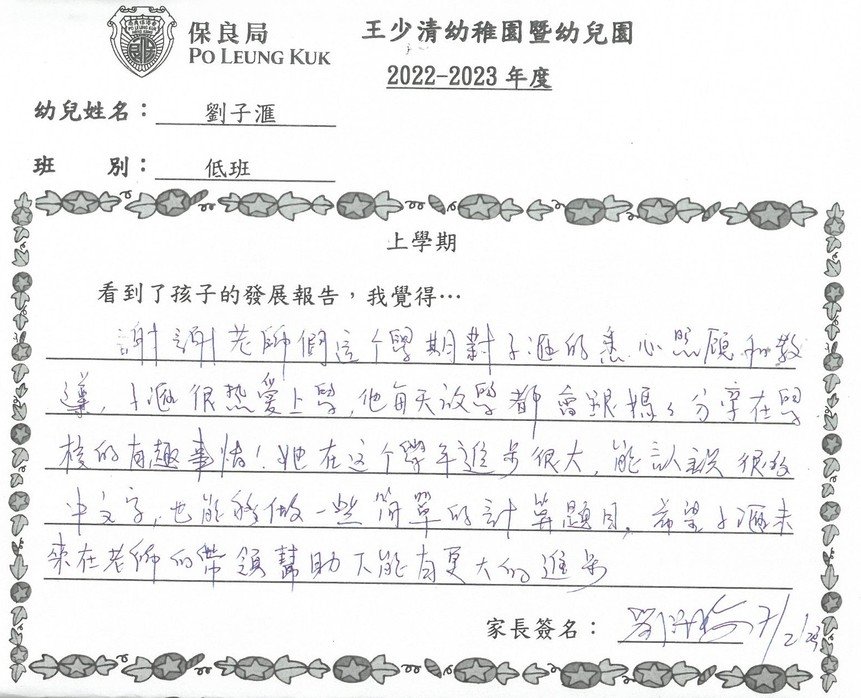 保良局
PO LEUNG KUK
王少清幼稚園暨幼兒園
2022-2023 年度
幼兒姓名：劉子滙
班 別：低班
上學期
看到了孩子的發展報告，我覺得…
謝謝老師們這个學期對子滙的悉心照顧和教
導，子滙很热愛上學，他每天放學都會跟媽々分享在學
校的有趣事情！她在这个學年進步很大，能認識很多
中文字，也能够做一些简單的計算題目，希望子滙未
來在老師的帶領幫助下能有更大的進步
家長簽名：
7/2/23